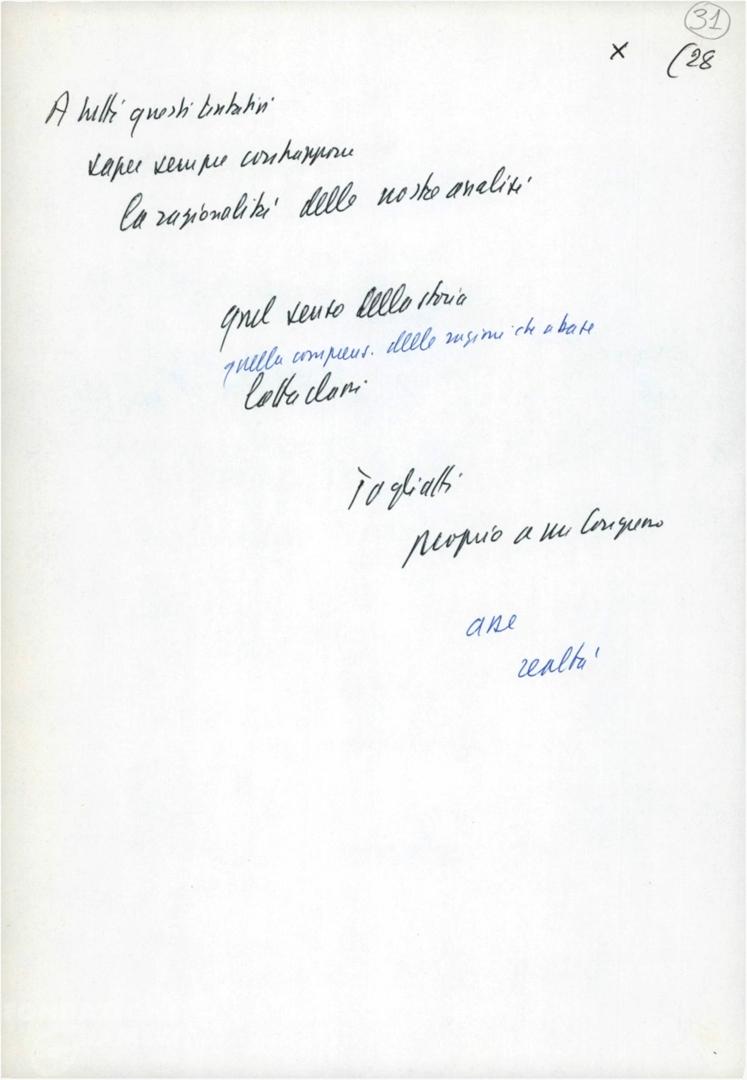 31
x (28
A tutti questi tentativi
saper sempre contrapporre
la razionalità della nostra analisi
quel senso della storia
quella comprens. delle ragioni che a base
lotta classi
Togliatti
proprio a un Congresso
asse
realtà